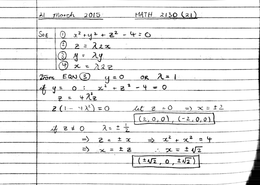 21 March 2015 MATH 2130 (21)
Sol ① x²+y²+z²-4=0
② z = λ2x
③ y = λy
④ x = λ2z
From EQN ③ y=0 or λ=1
if y=0: x²+z²-4=0
z = 4λ²z
z(1-4λ²)=0 let z=0 → x=±2
(2,0,0), (-2,0,0)
if z≠0 λ=±½
→ z=±x → x²+x²=4
→ x=±z ∴ x=±√2
(±√2, 0, ±√2)